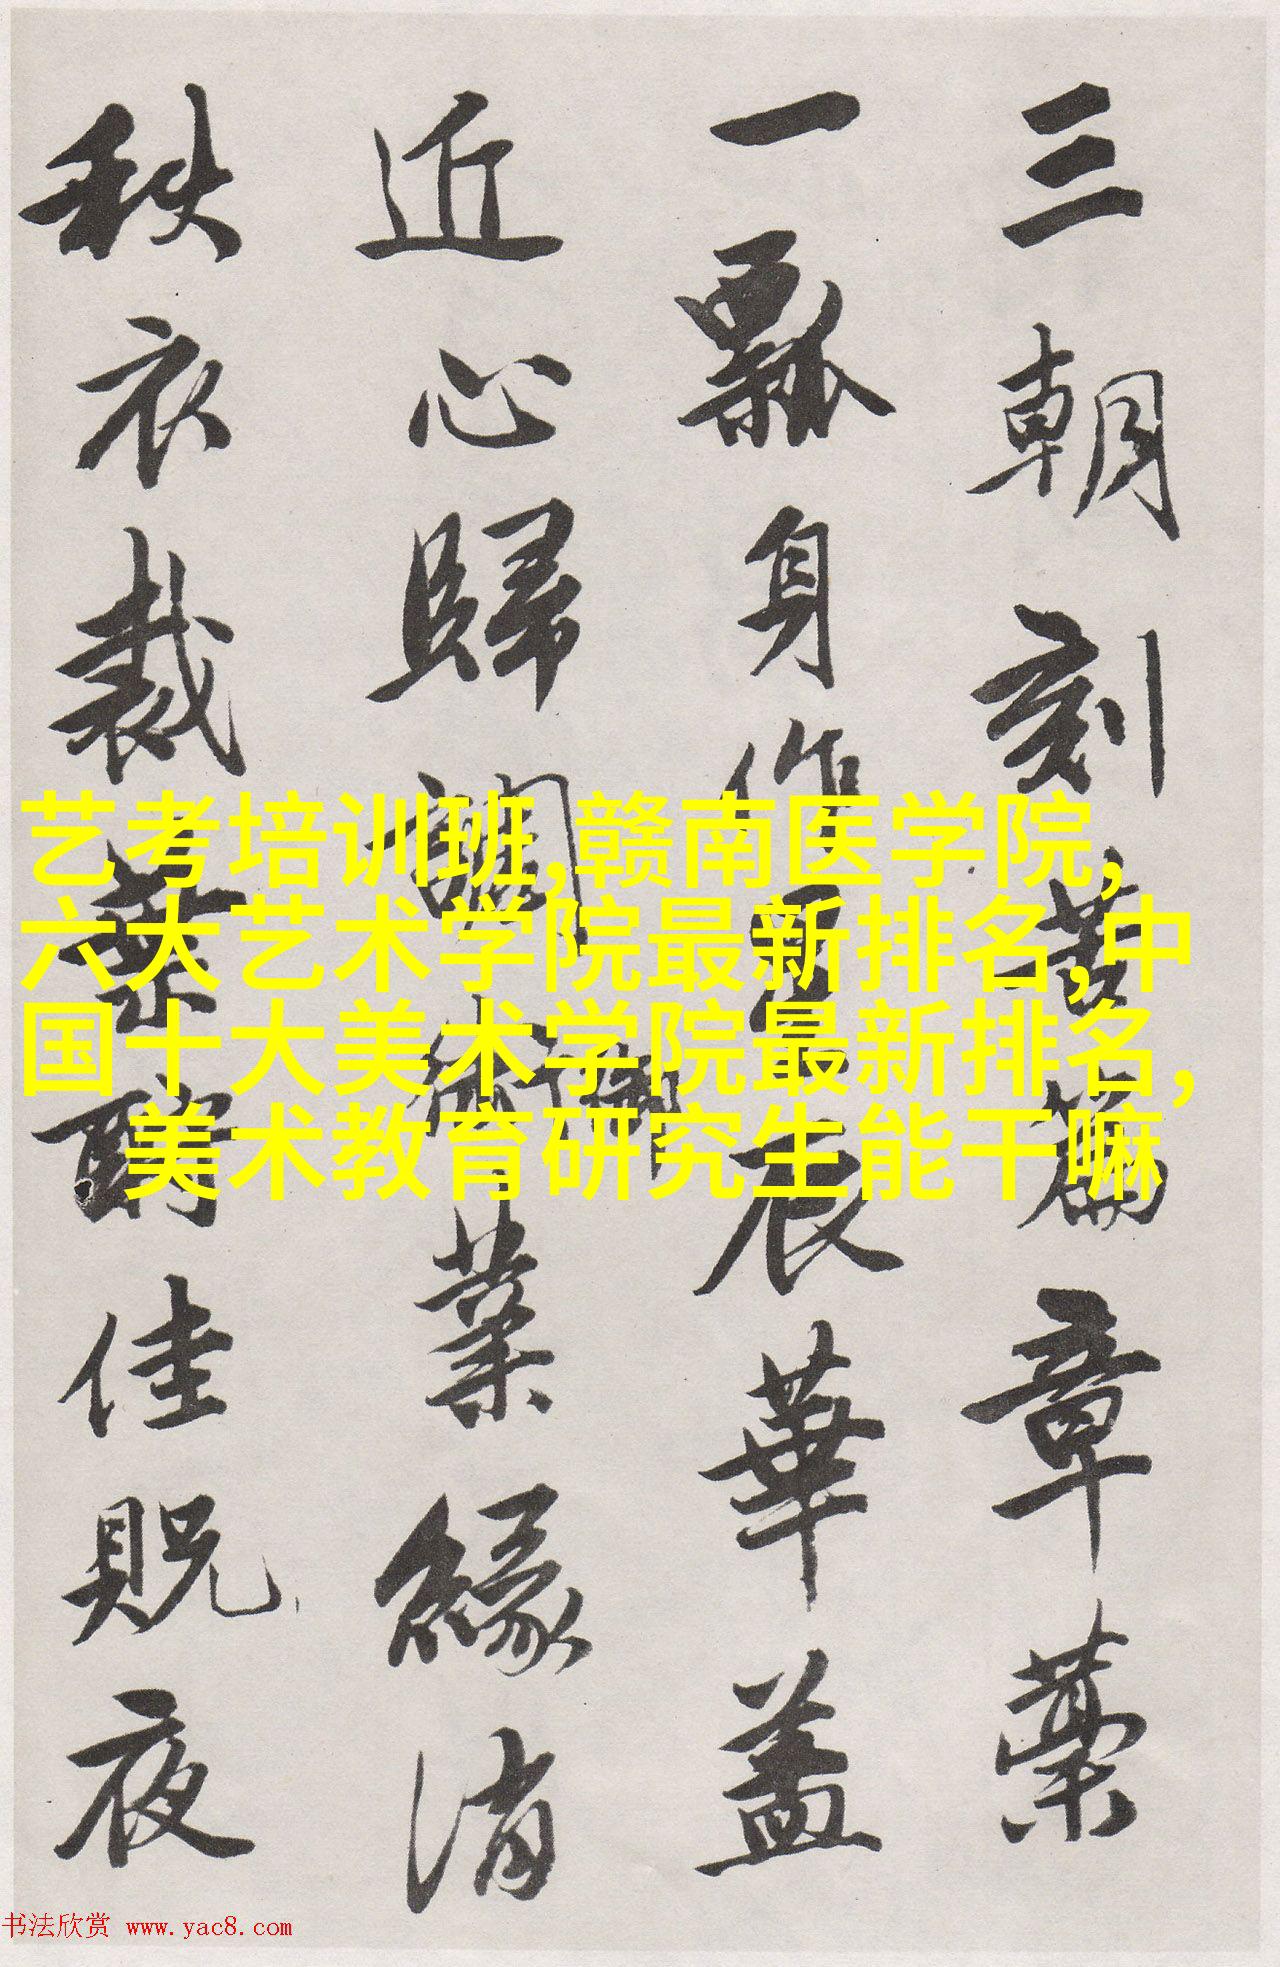 三朝刻苦篇章藁
一瓢身作辰華葢
近心歸調術業緣消
秩衣裁葉酧佳貺夜
艺考培训班,赣南医学院,
六大艺术学院最新排名,中
国十大美术学院最新排名,
美术教育研究生能干嘛
书法欣赏 www.yac8.com